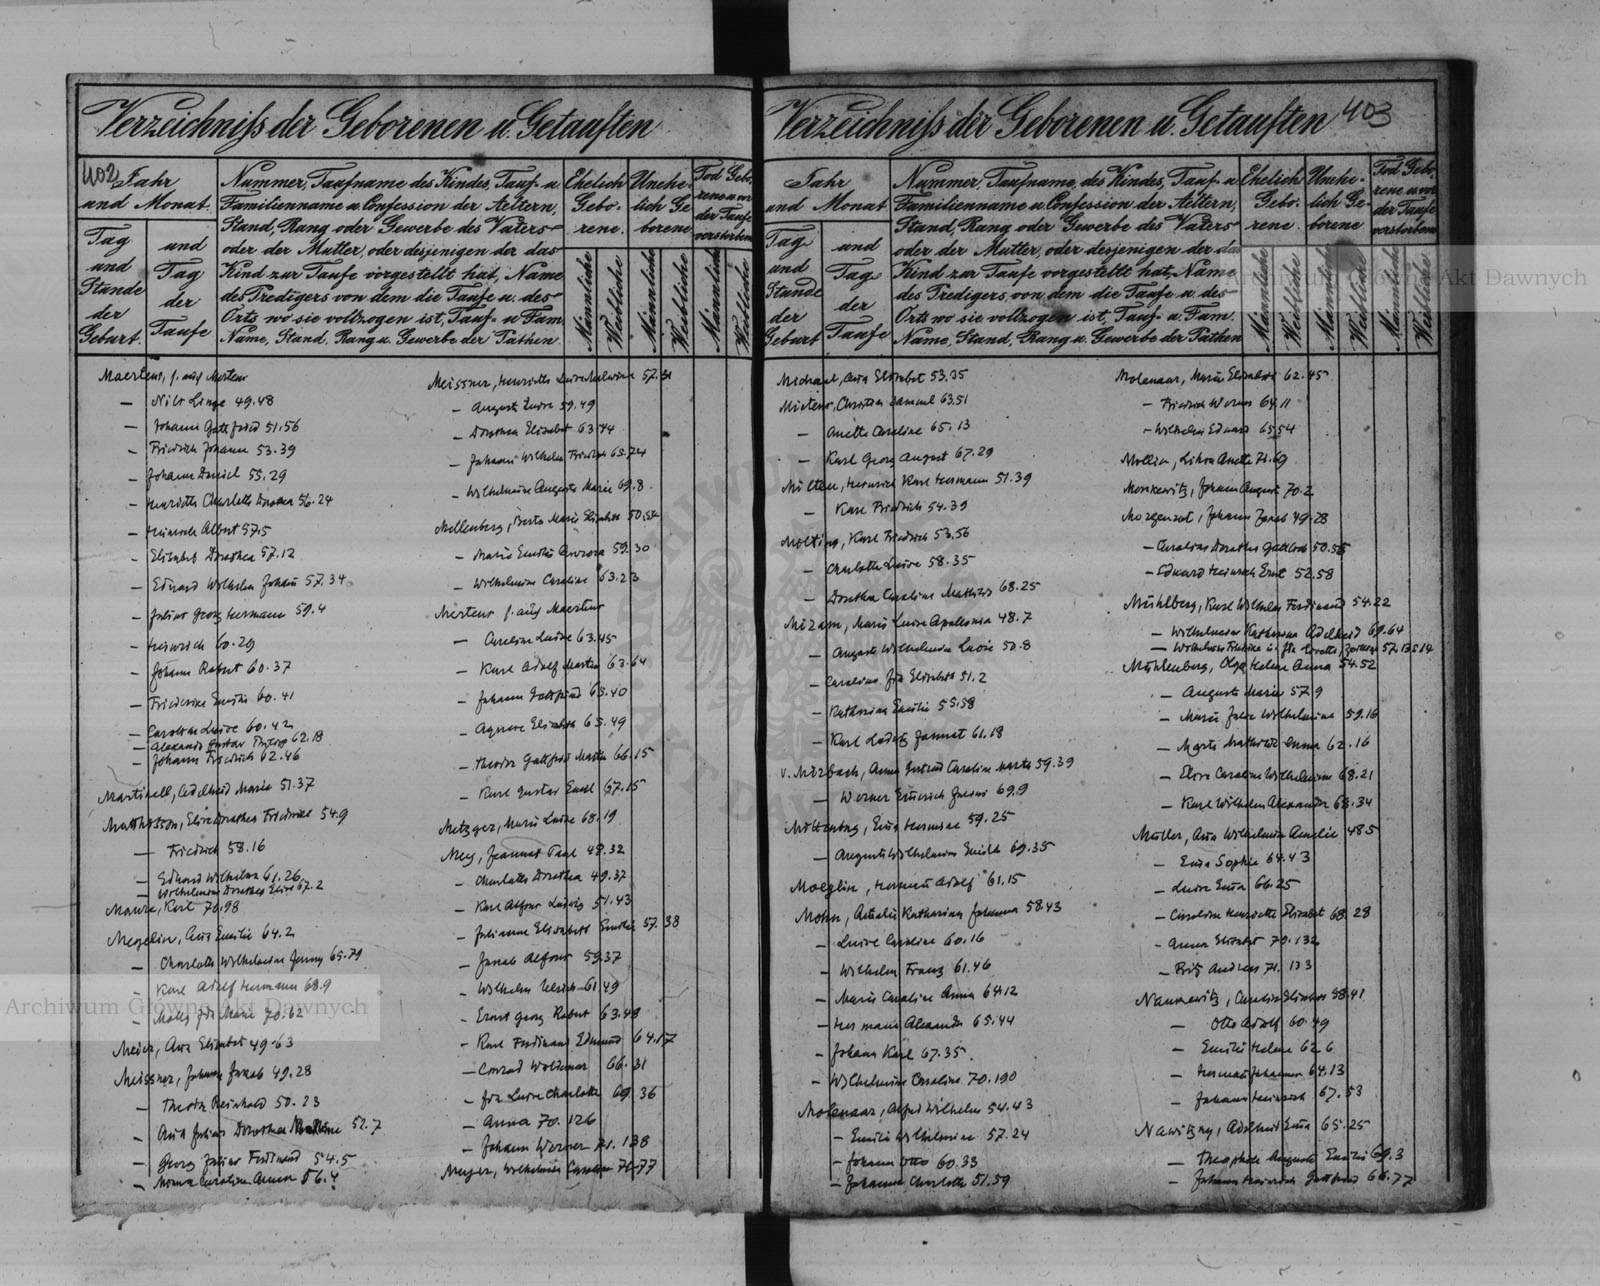 Verzeichniss der Geborenen u. Getauften
402
Jahr
und Monat
Tag
und
Stunde
der
Geburt.
und
Tag
der
Taufe
Nummer, Taufname des Kindes, Tauf- u
Familienname u. Confession der Aeltern,
Stand, Rang oder Gewerbe des Vaters
oder der Mutter, oder desjenigen der das
Kind zur Taufe vorgestellt hat, Name
des Predigers von dem die Taufe u. des
Orts wo sie vollzogen ist, Tauf- u Fam.
Name, Stand, Rang u. Gewerbe der Pathen
Ehelich
Gebo-
rene.
Unehe-
lich Ge
borene
Tod Gebo
rene u. vor
der Taufe
verstorbene
Männliche
Weibliche
Männliche
Weibliche
Männliche
Weibliche
Maertens, s. auch Mertens
— Nils 49.48
— Johann Gottfried 51.56
— Friedrich Johann 53.39
— Johann Daniel 55.29
— Henriette Charlotte 56.24
— Heinrich Albert 57.5
— Elisabet Dorothea 57.12
— Eduard Wilhelm Johann 57.34
— Julius Georg Hermann 59.4
— Heinrich 60.29
— Johann Robert 60.37
— Friederike Emilie 60.41
— Caroline Luise 60.42
— Alexander Gustav 62.18
— Johann Friedrich 62.46
Martinell, Adelheid Marie 51.37
Matthisson, Elise Dorothea Friederike 54.9
— Friedrich 58.16
— Eduard Wilhelm 61.26
— Wilhelmine Dorothea Elise 67.2
Maurer, Kurt 70.98
Megelin, Ana Emilie 64.2
— Charlotte Wilhelmine Jenny 65.79
— Karl Adolf Hermann 68.9
— Marie 70.62
Meier, Ana Elisabet 49.63
Meissner, Johann Jakob 49.28
— Theodor Reinhold 50.23
— Ana Juliana Dorothea 52.7
— Georg Julius Ferdinand 54.5
— Caroline Anna 56.4
Meissner, Henriette Luise Malwine 57.31
— Auguste Luise 59.49
— Dorothea Elisabet 63.44
— Johann Wilhelm Friedrich 65.24
— Wilhelmine Auguste Marie 69.8
Mellenberg, Berta Marie Elisabet 50.54
— Marie Emilie Aurora 59.30
— Wilhelmine Caroline 63.23
Mertens s. auch Maertens
— Caroline Luise 63.45
— Karl Adolf Martin 63.64
— Johann Gottfried 65.40
— Elisabeth 65.49
— Theodor Gottfried Martin 66.15
— Karl Gustav Emil 67.15
Metzger, Marie Luise 68.19
Mey, Jeannot Paul 48.32
— Charlotte Dorothea 49.37
— Karl Alfons Ludwig 51.43
— Julianne Elisabet Emilie 57.38
— Jakob Alfons 59.37
— Wilhelm Ulrich 61.49
— Ernst Georg Robert 63.48
— Karl Ferdinand Edmund 64.17
— Conrad Woldemar 66.31
— Ida Luise Charlotte 69.36
— Anna 70.126
— Johann Werner 71.138
Meyer, Wilhelmine Caroline 70.77
Verzeichniss der Geborenen u. Getauften
403
Jahr
und Monat
Tag
und
Stunde
der
Geburt
und
Tag
der
Taufe
Nummer, Taufname, des Kindes, Tauf- u
Familienname u. Confession der Aeltern,
Stand, Rang oder Gewerbe des Vaters
oder der Mutter, oder desjenigen der das
Kind zur Taufe vorgestellt hat, Name
des Predigers, von dem die Taufe u. des
Orts wo sie vollzogen ist, Tauf- u. Fam.
Name, Stand, Rang u. Gewerbe der Pathen
Ehelich
Gebo-
rene
Unehe-
lich Ge-
borene
Tod Gebo
rene u. vor
der Taufe
verstorbene
Männliche
Weibliche
Männliche
Weibliche
Männliche
Weibliche
Michael, Ana Elisabet 53.35
Mietens, Christian Samuel 63.51
— Anette Caroline 65.13
— Karl Georg August 67.29
Milten, Heinrich Karl Hermann 51.39
— Karl Friedrich 54.39
Karl Friedrich 53.56
— Charlotte Luise 58.35
— Dorothea Caroline Mathilde 68.25
Mizam, Marie Luise Apollonia 48.7
— Auguste Wilhelmine 50.8
— Caroline Ida Elisabeth 51.2
— Katharina Emilie 55.58
— Karl Ludwig Jannot 61.18
v. Mirbach, Anna Caroline Marta 59.39
— Werner Emerich Julius 69.9
Ema Hermine 59.25
— Auguste Wilhelmine Emilie 69.35
Moeglin, Hermann Adolf 61.15
Mohn, Amalie Katharina Johanna 58.43
— Luise Caroline 60.16
— Wilhelm Franz 61.46
— Marie Caroline Anna 64.12
— Hermann Alexander 65.44
— Johann Karl 67.35
— Wilhelmine Caroline 70.190
Molenaar, Alfred Wilhelm 54.43
— Emilie Wilhelmine 57.24
— Johann Otto 60.33
— Johanna Charlotte 51.59
Molenaar, Marie Elisabet 62.45
— Friedrich Werner 64.11
— Wilhelm Eduard 65.54
Anette 71.69
Monkewitz, Johann August 70.2
Morgenrot, Johann Jakob 49.28
— Caroline Dorothea 50.56
— Eduard Heinrich Ernst 52.58
Mühlberg, Karl Wilhelm Ferdinand 54.22
— Wilhelmine Katharina Adelheid 69.64
Mühlenberg, Olga Helene Anna 54.52
— Auguste Marie 57.9
— Marie Julie Wilhelmine 59.16
— Marta Mathilde Emma 62.16
— Elvire Caroline Wilhelmine 68.21
— Karl Wilhelm Alexander 68.34
Müller, Ana Wilhelmine Amalie 48.5
— Ema Sophie 64.43
— Luise Ema 66.25
— Caroline Henriette Elisabet 68.28
— Anna Elisabet 70.132
— Fritz Andreas 71.133
Naumowitz, Caroline Elisabet 58.41
— Otto Adolf 60.49
— Emilie Helene 62.6
— Hermann Johannes 64.13
— Johann Heinrich 67.53
Nawitzky, Adelheid Ema 65.25
— Theophile Auguste Emilie 69.3
— Johann Heinrich Gottfried 66.77
Archiwum Główne Akt Dawnych
Archiwum Główne Akt Dawnych